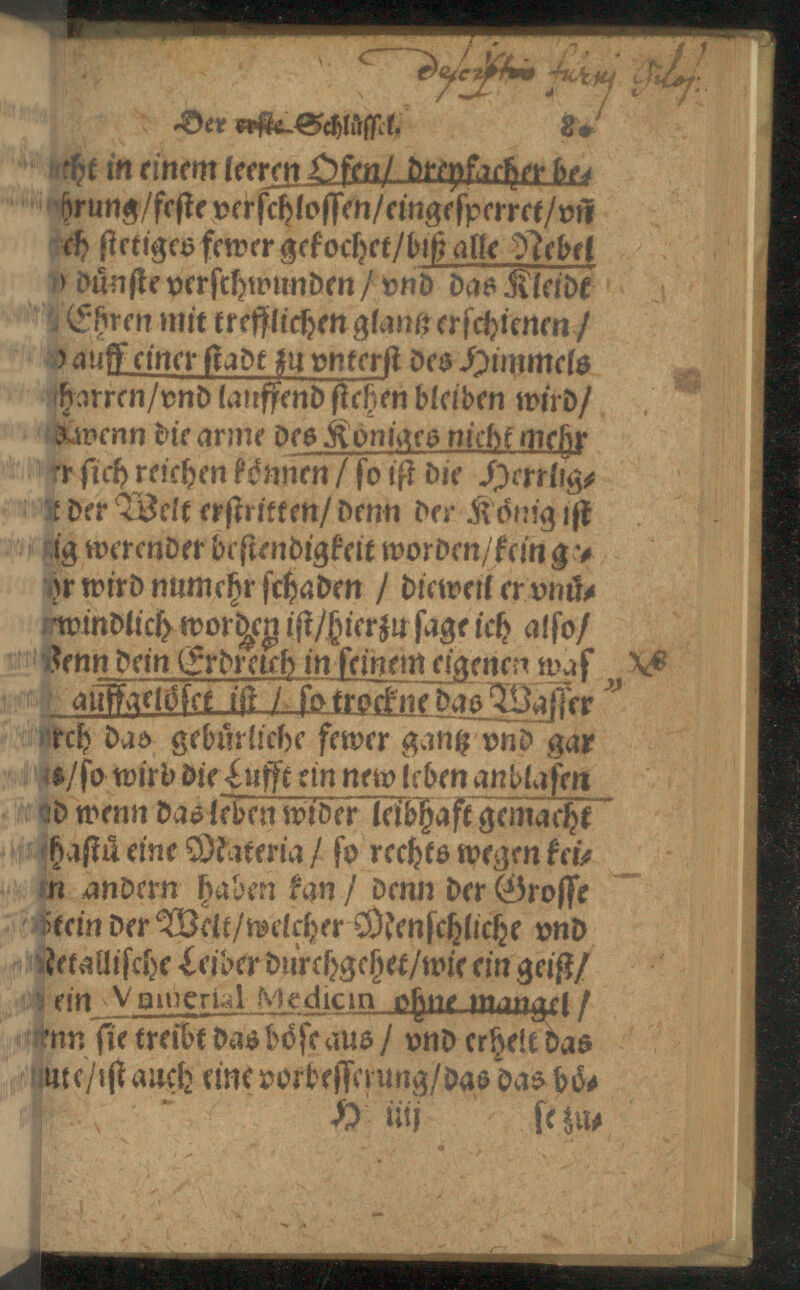 Der erste Schlüssel.
in einem leeren Ofen/ dreyfacher be⸗
hrung/feste verschlossen/eingesperret/vñ
stetiges fewer gekochet/biß alle Nebel
důnste verschwunden / vnd das Kleidt
Ehren mit trefflichen glantz erschienen /
auff einer stadt zu vnterst des Himmels
harren/vnd lauffend stehen bleiben wird/
wenn die arme des Königes nicht mehr
sich reichen kőnnen / so ist die Herrlig⸗
der Welt erstritten/ denn der Kőnig ist
werender bestendigkeit worden/kein ge⸗
wird numehr schaden / dieweil er vnů⸗
windlich worden ist/hierzu sage ich also/
Wenn dein Erdreich in seinem eigenen was
auffgelőset ist / so trockne das Wasser
das gebůrliche fewer gantz vnd gar
/so wird die Lufft ein new leben anblasen
wenn das leben wider leibhaft gemacht
hastů eine Materia / so rechts wegen kei⸗
andern haben kan / denn der Grosse
Stein der Welt/welcher Menschliche vnd
Metallische Leiber durchgehet/wie ein geist/
ein Vniuerial Medicin ohne mangel /
sie treibt das bőse aus / vnd erhelt das
/ist auch eine vorbesserung/das das bő⸗
H iiij se zu⸗